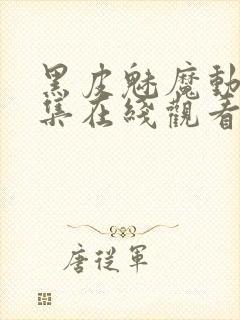 黑皮魅魔動
集在綫觀看
唐從軍